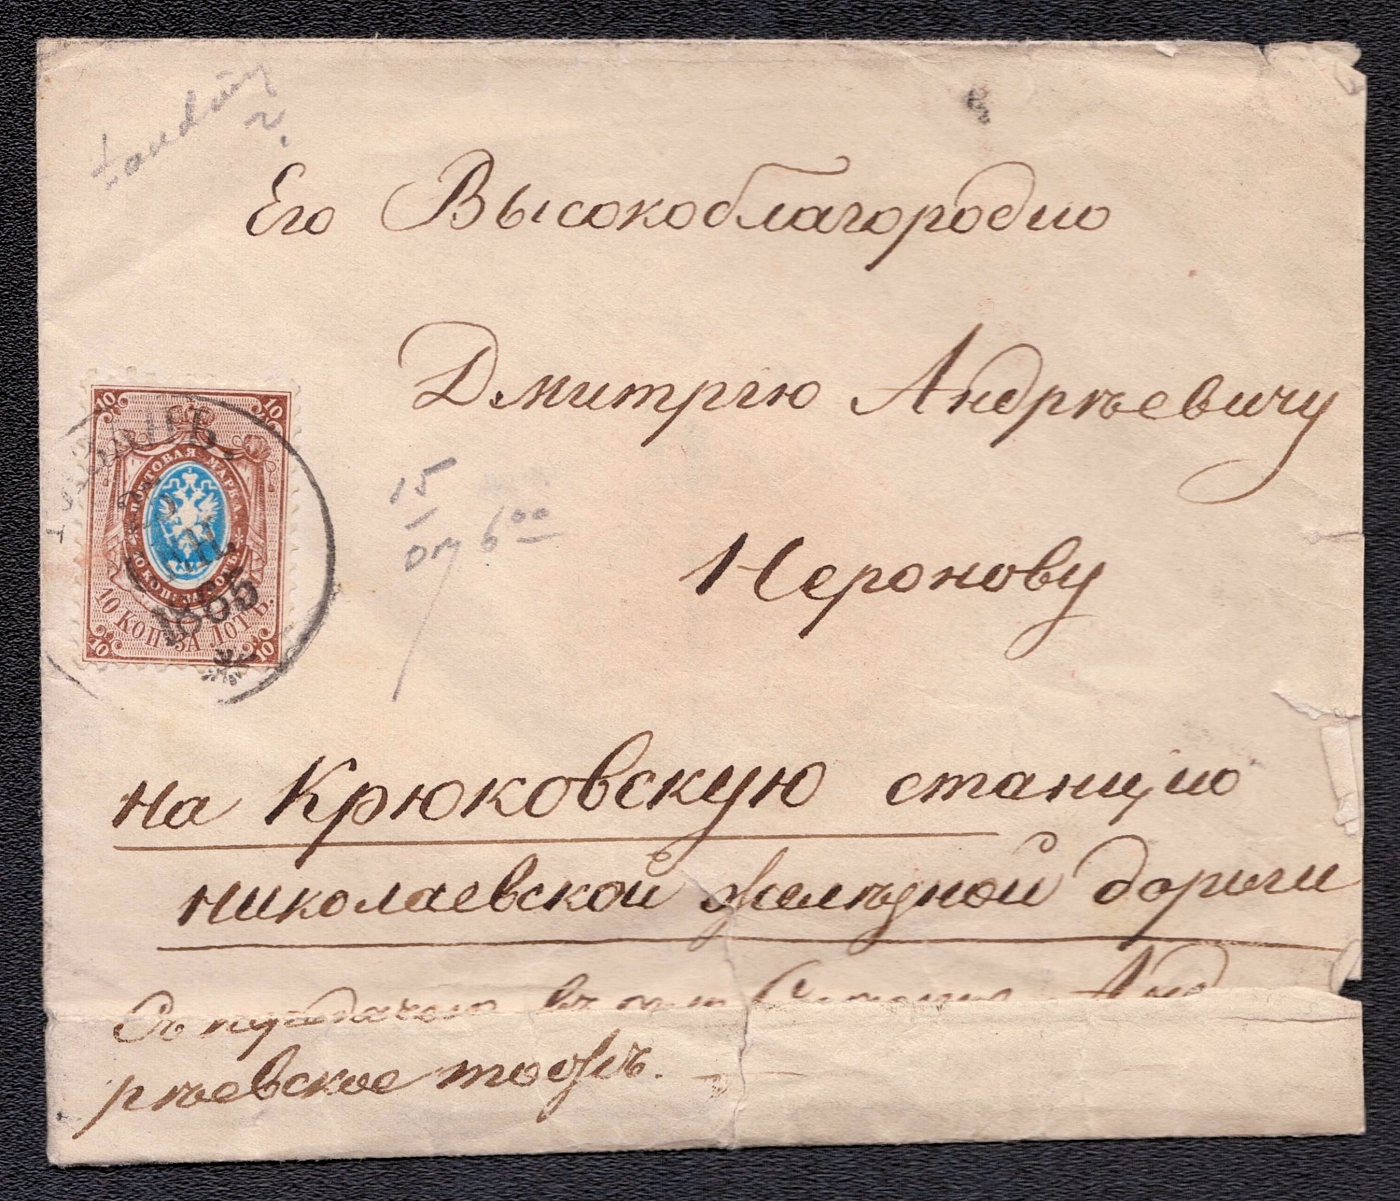 Его Высокоблагородію
Дмитрію Андрѣевичу
15
6 00
Неронову
10 10
ПОЧТОВАЯ МАРКА
10 КОП. ЗА ЛОТЪ.
10 10
1865
на Крюковскую станцію
николаевской желѣзной дороги
Съ передачею въ Анд
рѣевское тожъ.